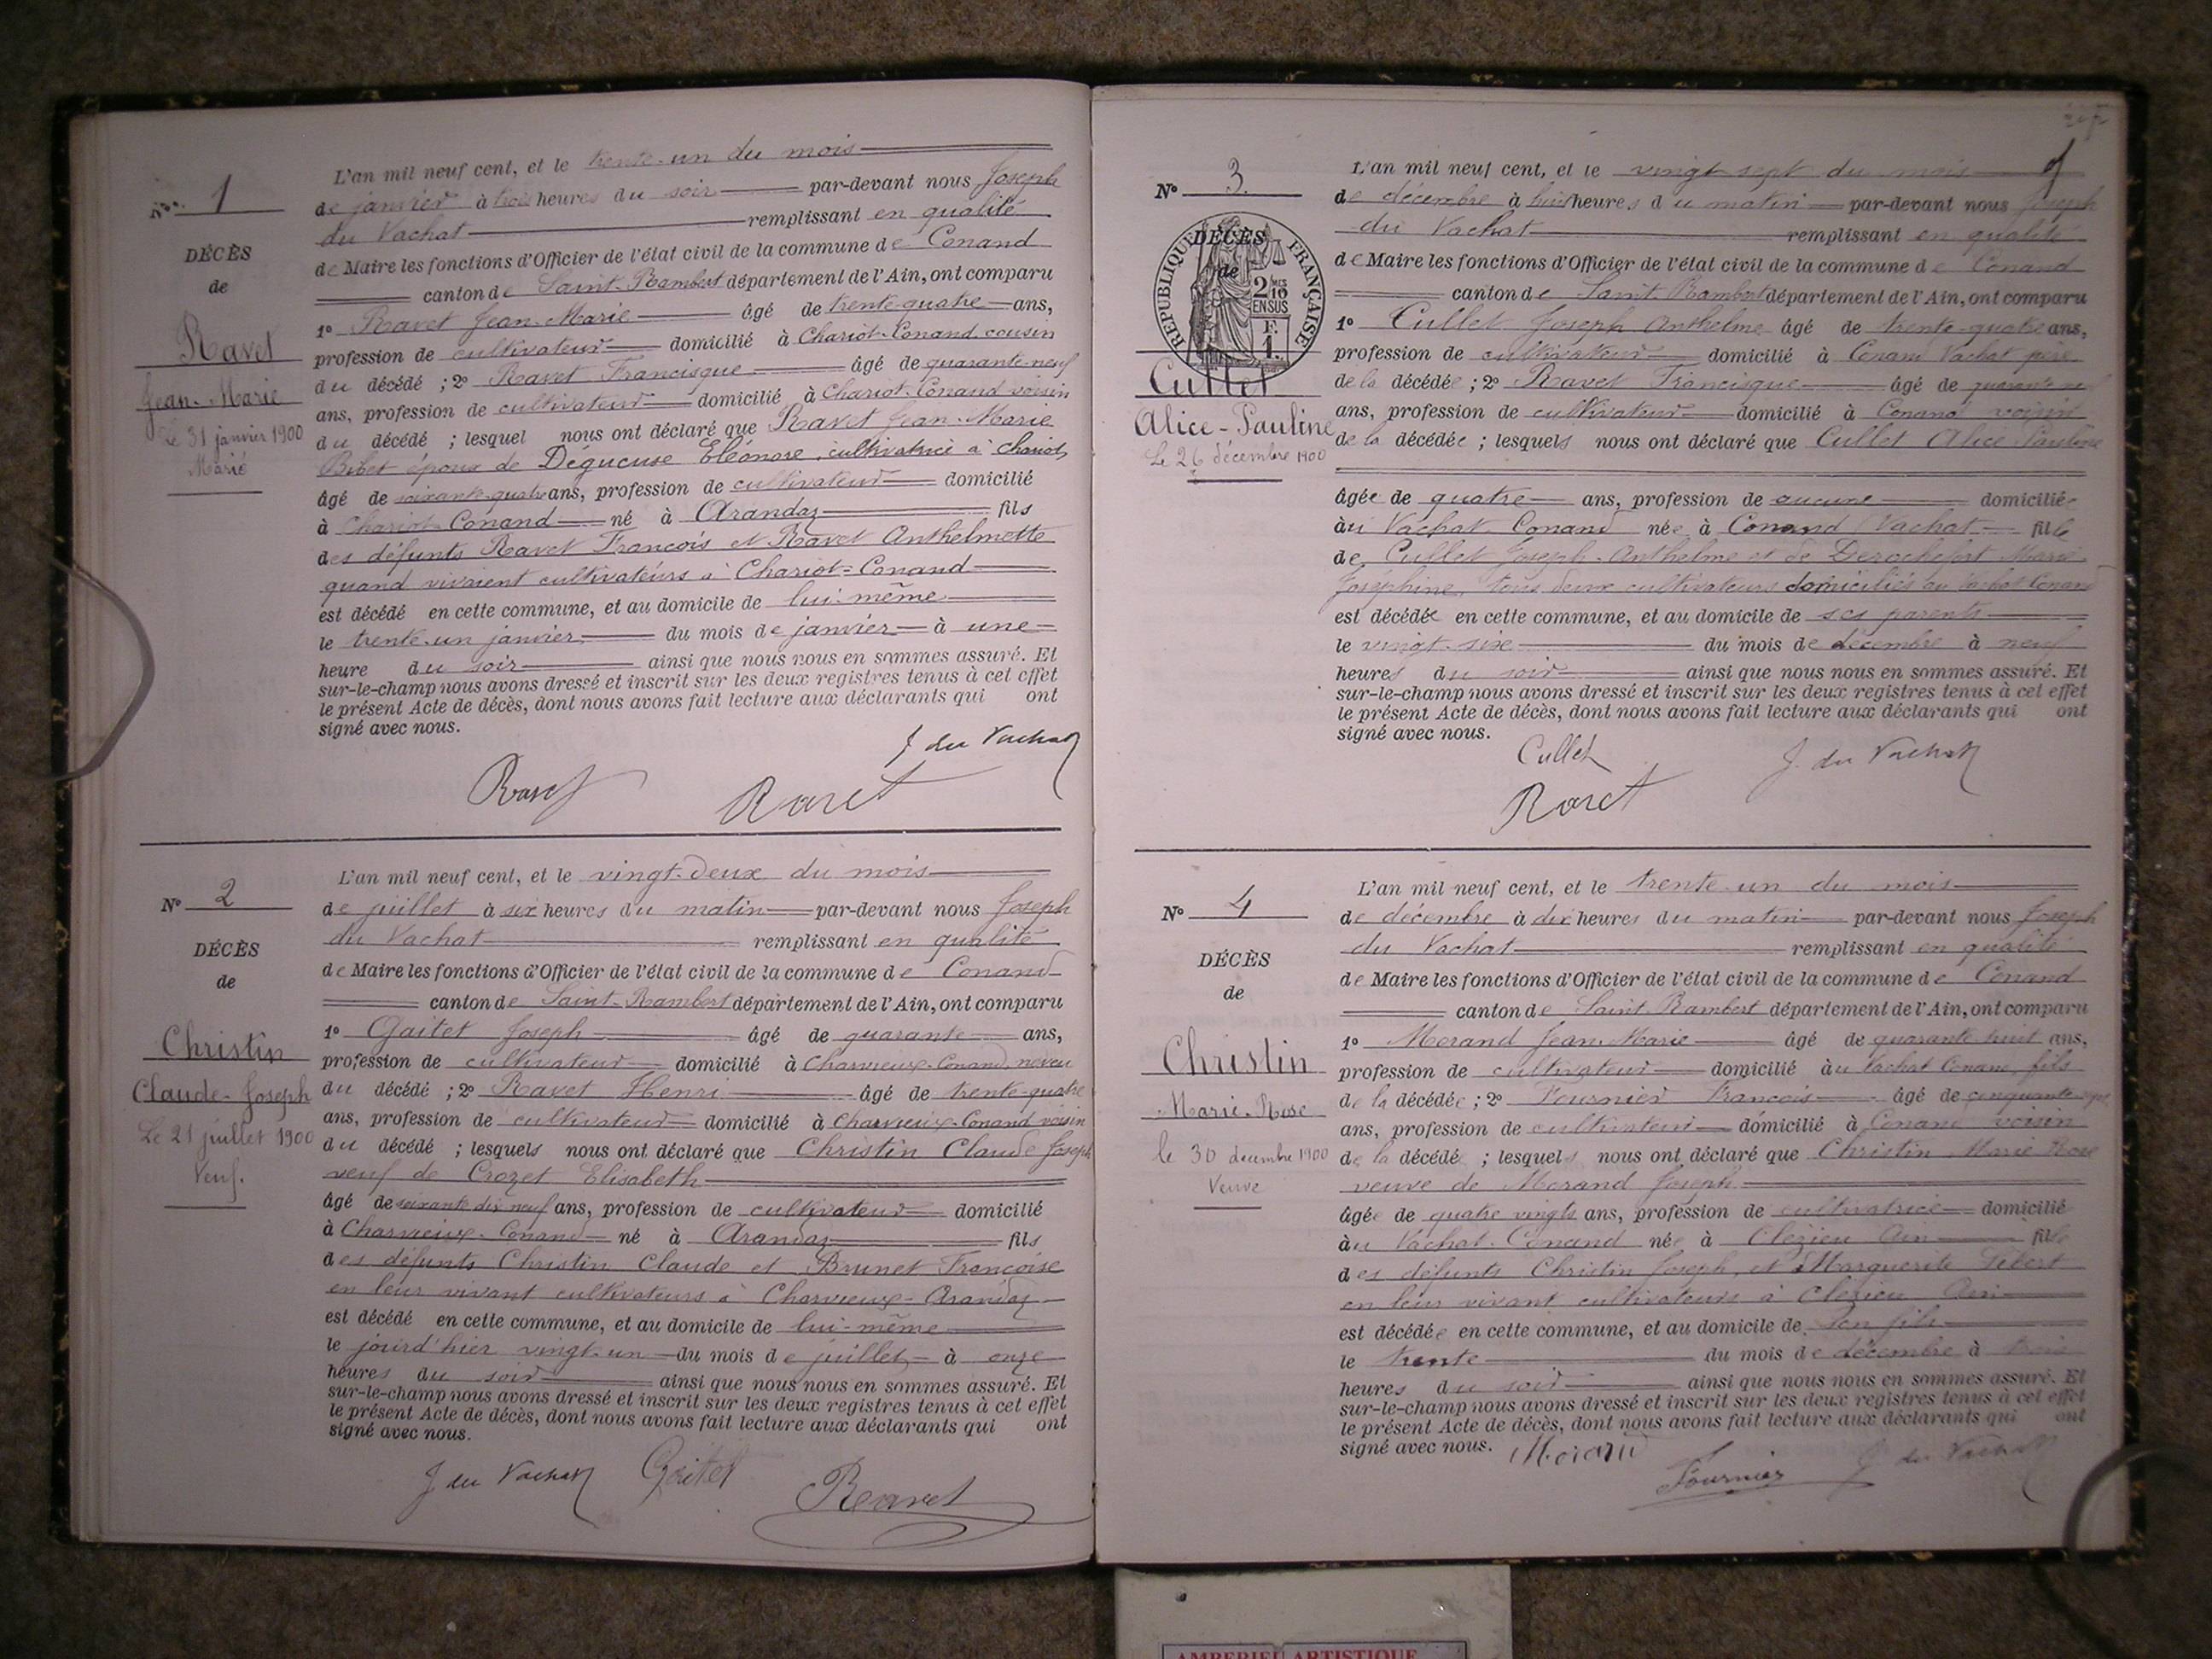 N° 1
DÉCÈS
de
Ravet
Jean-Marie
Le 31 janvier 1900
Marié
L'an mil neuf cent, et le trente-un du mois
de janvier à trois heures du soir par-devant nous Joseph
du Vachat remplissant en qualité
de Maire les fonctions d'Officier de l'état civil de la commune de Conand
canton de Saint-Rambert département de l'Ain, ont comparu
1° Ravet Jean-Marie âgé de trente-quatre ans,
profession de cultivateur domicilié à Chariot-Conand cousin
du décédé ; 2° Ravet Francisque âgé de quarante-neuf
ans, profession de cultivateur domicilié à Chariot-Conand voisin
du décédé ; lesquel nous ont déclaré que Ravet Jean-Marie
époux de Dégueuse Eléonore, cultivatrice à Chariot
âgé de soixante-quatre ans, profession de cultivateur domicilié
à Chariot-Conand né à Arandaz fils
des défunts Ravet François et Ravet Anthelmette
quand vivaient cultivateurs à Chariot-Conand
est décédé en cette commune, et au domicile de lui-même
le trente-un janvier du mois de janvier à une
heure du soir ainsi que nous nous en sommes assuré. Et
sur-le-champ nous avons dressé et inscrit sur les deux registres tenus à cet effet
le présent Acte de décès, dont nous avons fait lecture aux déclarants qui ont
signé avec nous.
J. du Vachat
Ravet Ravet
N° 2
DÉCÈS
de
Christin
Claude-Joseph
Le 21 juillet 1900
Veuf.
L'an mil neuf cent, et le vingt-deux du mois
de juillet à six heures du matin par-devant nous Joseph
du Vachat remplissant en qualité
de Maire les fonctions d'Officier de l'état civil de la commune de Conand
canton de Saint-Rambert département de l'Ain, ont comparu
1° Gaitet Joseph âgé de quarante ans,
profession de cultivateur domicilié à Charvieux-Conand, neveu
du décédé ; 2° Ravet Henri âgé de trente-quatre
ans, profession de cultivateur domicilié à Charvieux-Conand voisin
du décédé ; lesquels nous ont déclaré que Christin Claude Joseph
veuf de Crozet Elisabeth
âgé de soixante dix neuf ans, profession de cultivateur domicilié
à Charvieux-Conand né à Arandaz fils
des défunts Christin Claude et Brunet Françoise
en leur vivant cultivateurs à Charvieux-Arandaz
est décédé en cette commune, et au domicile de lui-même
le jourd'hier vingt-un du mois de juillet à onze
heures du soir ainsi que nous nous en sommes assuré. Et
sur-le-champ nous avons dressé et inscrit sur les deux registres tenus à cet effet
le présent Acte de décès, dont nous avons fait lecture aux déclarants qui ont
signé avec nous.
J du Vachat Gaitet Ravet
N° 3.
DÉCÈS
de
RÉPUBLIQUE FRANÇAISE
2/10MES
EN SUS
F.
1.
Cullet
Alice-Pauline
Le 26 décembre 1900
L'an mil neuf cent, et le vingt sept du mois
de décembre à huit heures du matin par-devant nous Joseph
du Vachat remplissant en qualité
de Maire les fonctions d'Officier de l'état civil de la commune de Conand
canton de Saint-Rambert département de l'Ain, ont comparu
1° Cullet Joseph Anthelme âgé de trente-quatre ans,
profession de cultivateur domicilié à Conand Vachat père
de la décédée ; 2° Ravet Francisque âgé de quarante-neuf
ans, profession de cultivateur domicilié à Conand voisin
de la décédée ; lesquels nous ont déclaré que Cullet Alice Pauline
âgée de quatre ans, profession de aucune domiciliée
au Vachat Conand née à Conand Vachat fille
de Cullet Joseph-Anthelme et de Derochefort Marie
Joséphine, tous deux cultivateurs domiciliés au Vachat Conand
est décédée en cette commune, et au domicile de ses parents
le vingt-six du mois de décembre à neuf
heures du soir ainsi que nous nous en sommes assuré. Et
sur-le-champ nous avons dressé et inscrit sur les deux registres tenus à cet effet
le présent Acte de décès, dont nous avons fait lecture aux déclarants qui ont
signé avec nous.
Cullet J. du Vachat
Ravet
N° 4
DÉCÈS
de
Christin
Marie-Rose
le 30 décembre 1900
Veuve
L'an mil neuf cent, et le trente-un du mois
de décembre à dix heures du matin par-devant nous Joseph
du Vachat remplissant en qualité
de Maire les fonctions d'Officier de l'état civil de la commune de Conand
canton de Saint-Rambert département de l'Ain, ont comparu
1° Morand Jean-Marie âgé de quarante huit ans,
profession de cultivateur domicilié au Vachat Conand, fils
de la décédée ; 2° Fournier François âgé de cinquante
ans, profession de cultivateur domicilié à Conand voisin
de la décédé ; lesquels nous ont déclaré que Christin Marie Rose
veuve de Morand Joseph
âgée de quatre vingts ans, profession de cultivatrice domicilié
au Vachat-Conand née à Clézieu Ain fille
des défunts Christin Joseph, et Marguerite
en leur vivant cultivateurs à Clézieu Ain
est décédée en cette commune, et au domicile de son fils
le trente du mois de décembre à trois
heures du soir ainsi que nous nous en sommes assuré. Et
sur-le-champ nous avons dressé et inscrit sur les deux registres tenus à cet effet
le présent Acte de décès, dont nous avons fait lecture aux déclarants qui ont
signé avec nous. Morand
Fournier J du Vachat
AMBERIEU ARTISTIQUE